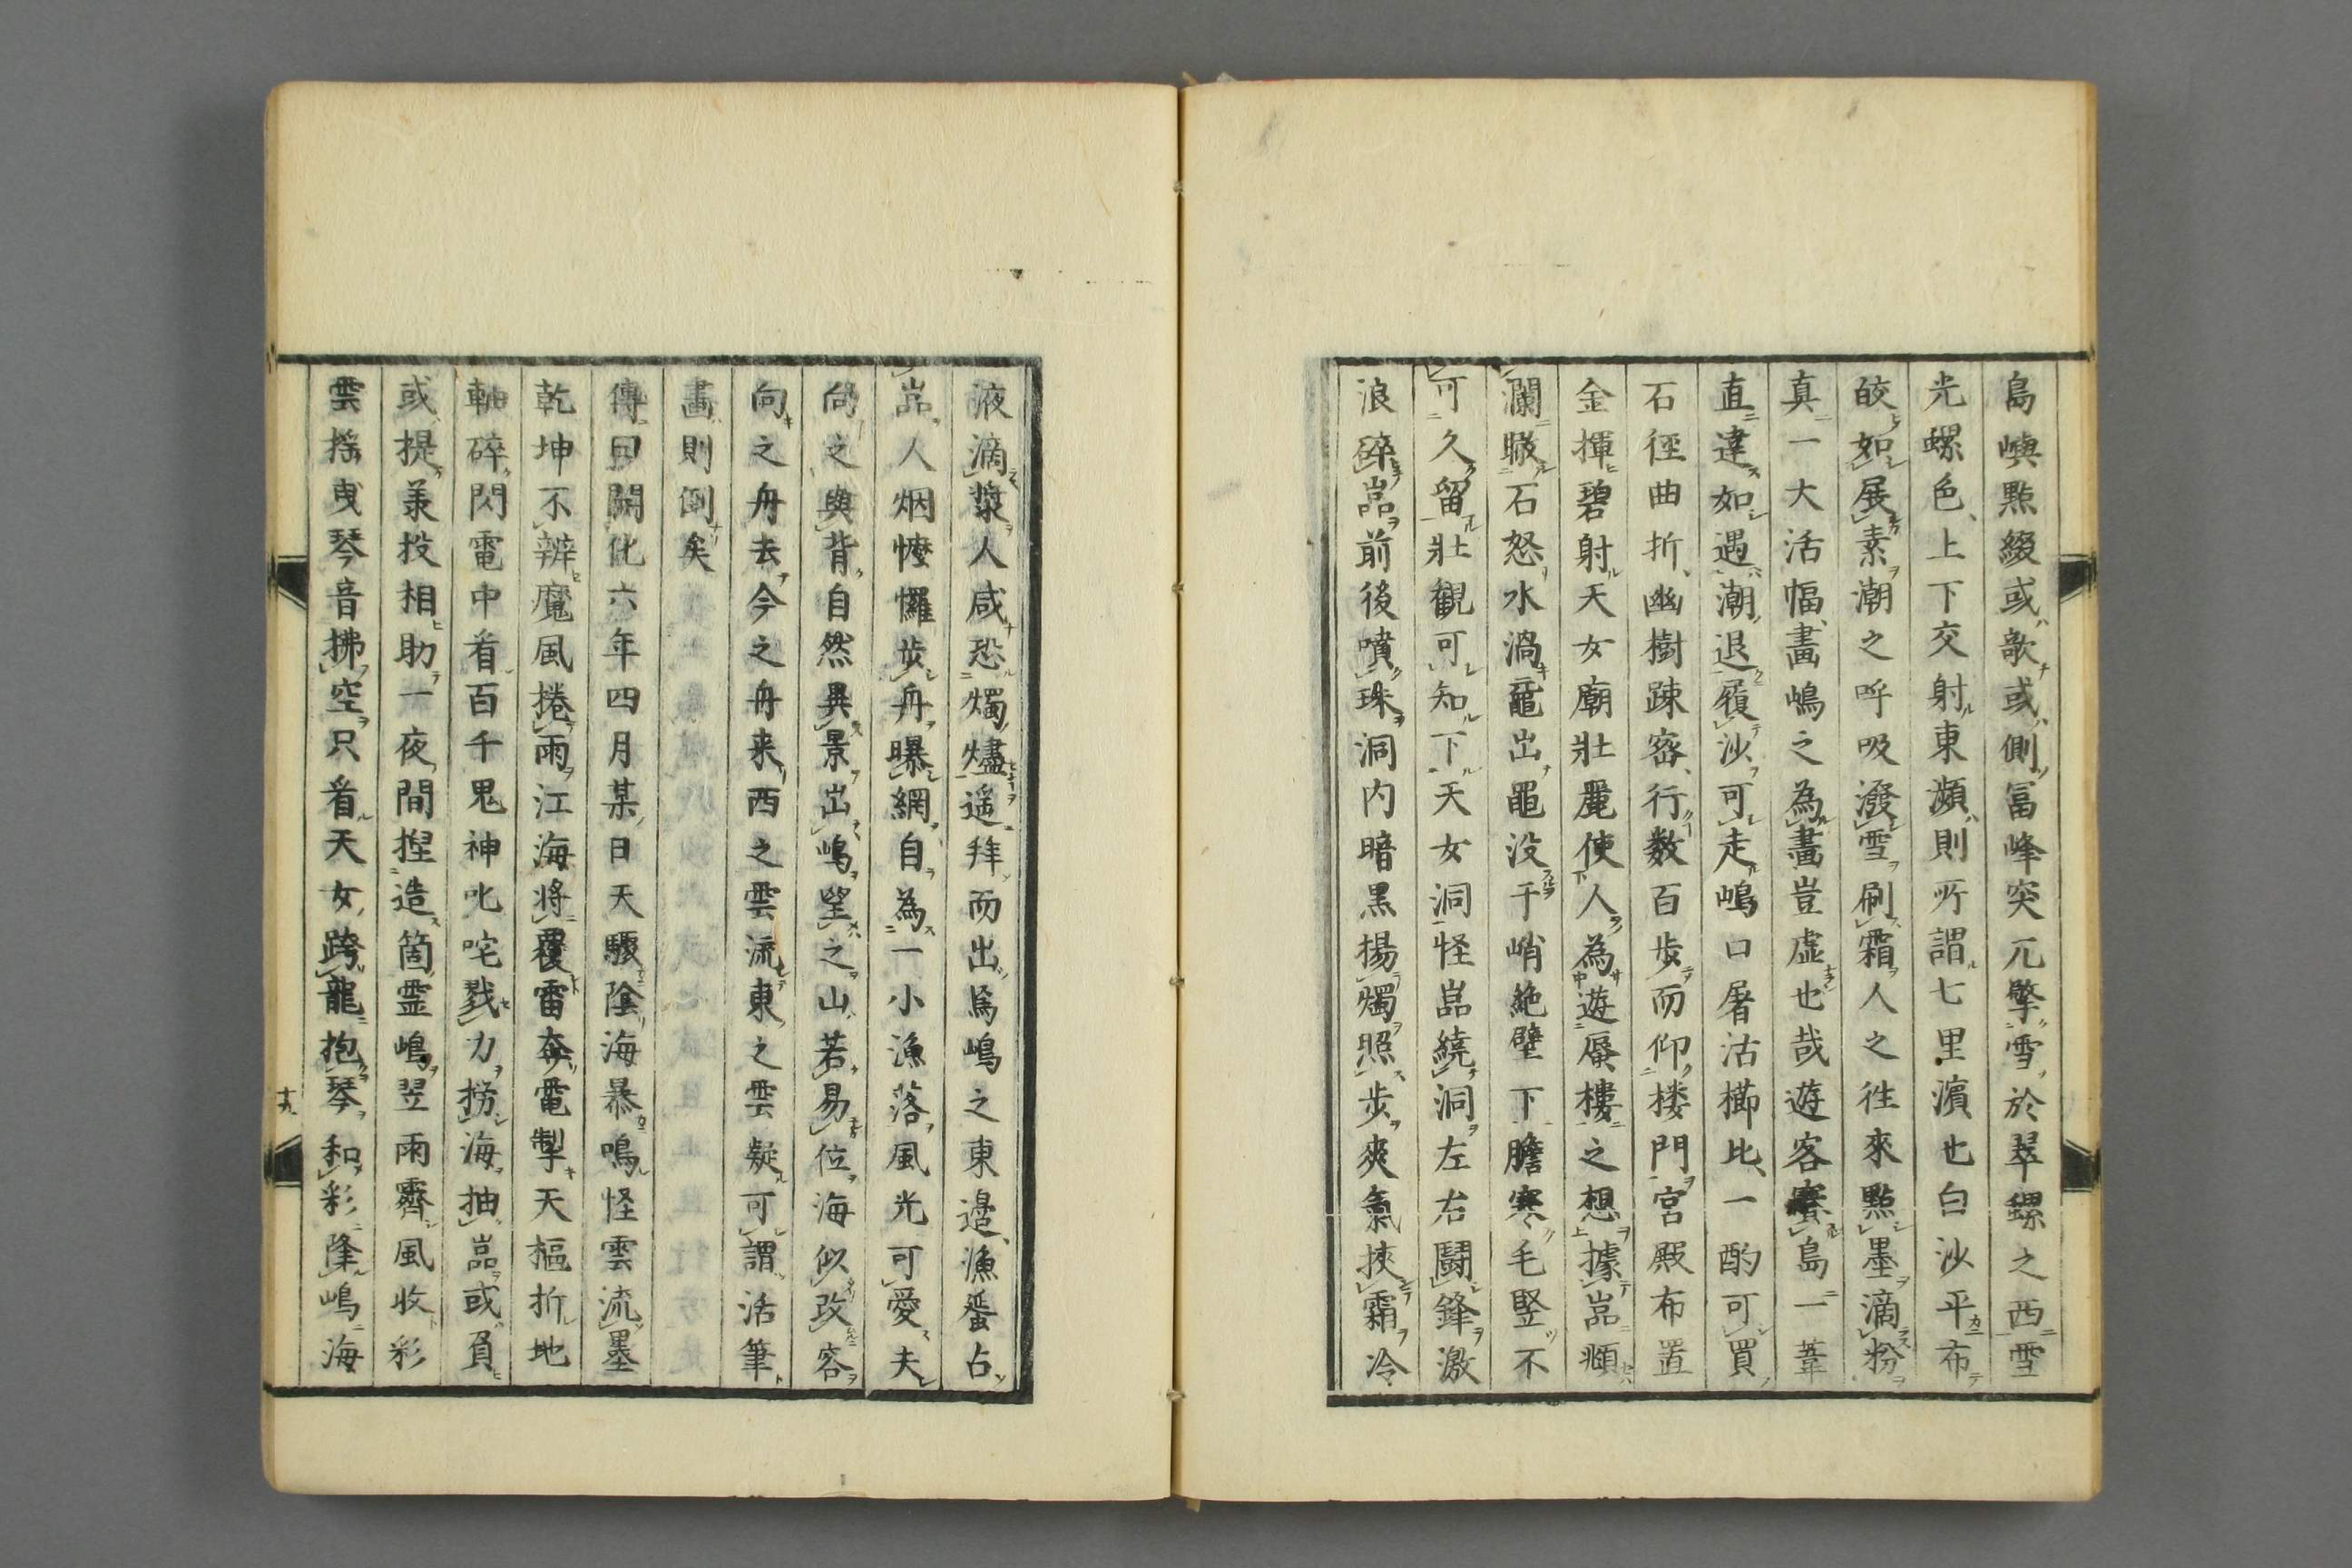 島嶼點綴或欹或側冨峰突兀擎雪於翠螺之西雪
光螺色上下交射東瀕則所謂七里濵也白沙平布
皎如展素潮之呼吸潑雪刷霜人之徃來點墨滴粉
真一大活幅畵嶋之為畵豈虛也哉遊客賽島一葦
直達如遇潮退履沙可走嶋口屠沽櫛比一酌可買
石徑曲折幽樹踈宻行数百步而仰楼門宮殿布置
金揮碧射天女廟壯麗使人為遊蜃樓之想據嵓頫
瀾瞰石怒水渦黿出黽没于峭絶壁下膽寒毛竪不
可久留壯觀可知下天女洞怪嵓繞洞左右鬪鋒激
浪碎嵓前後噴珠洞内暗黒揚燭照步爽氣挾霜冷
液滴漿人咸恐燭燼遥拜而出焉嶋之東邉漁蜑占
嵓人烟㦬㦬步舟曝網自為一小漁落風光可愛夫
向之與背自然異景出嶋望之山若易位海似改容
向之舟去今之舟来西之雲流東之雲疑可謂活筆
畵則倒矣
傳曰開化六年四月某日天驟陰海暴鳴怪雲流墨
乾坤不辨魔風捲雨江海將覆雷奔電掣天樞折地
軸碎閃電中看百千鬼神叱咤戮力撈海抽嵓或負
或提羕投相助一夜間揑造箇霊嶋翌雨霽風收彩
雲揺曳琴音拂空只看天女跨龍抱琴和彩隆嶋海
十九